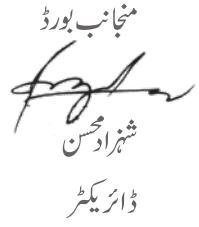 منجانب بورڈ
شہزاد محسن
ڈائریکٹر